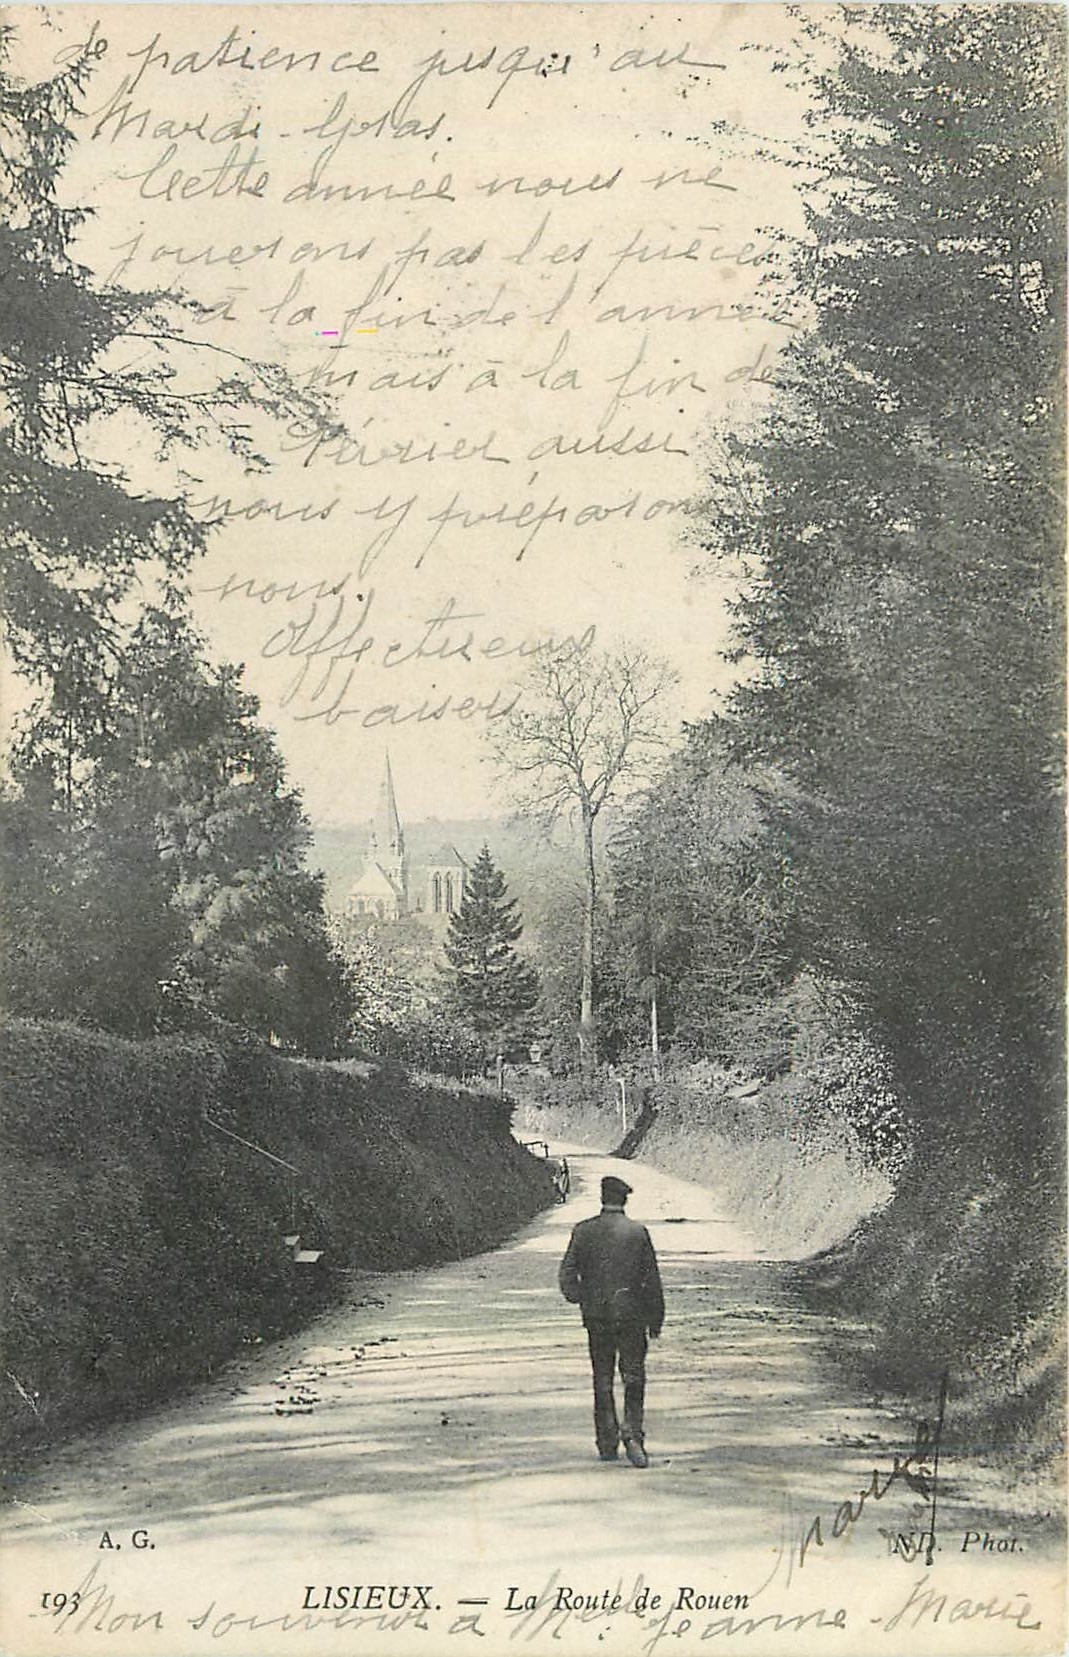 de patience jusqu'au
Mardi-Gras.
Cette année nous ne
jouerons pas les pièces
à la fin de l'année
mais à la fin de
Février aussi
nous y préparons
nous.
Affectueux
baisers
A. G.
ND. Phot.
193
LISIEUX. — La Route de Rouen
Mon souvenir à Melle Jeanne-Marie